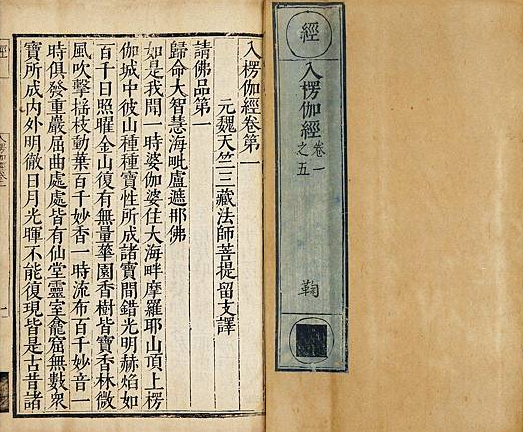 經
入楞伽經
卷一
之五
鞠
入楞伽經卷第一
元魏天竺三藏法師菩提留支譯
請佛品第一
歸命大智慧海毗盧遮那佛
如是我聞一時婆伽婆住大海畔摩羅耶山頂上楞
伽城中彼山種種寶性所成諸寶間錯光明赫焰如
百千日照曜金山復有無量華園香樹皆寶香林微
風吹擊搖枝動葉百千妙香一時流布百千妙音一
時俱發重巖屈曲處處皆有仙堂靈室龕窟無數衆
寶所成內外明徹日月光暉不能復現皆是古昔諸